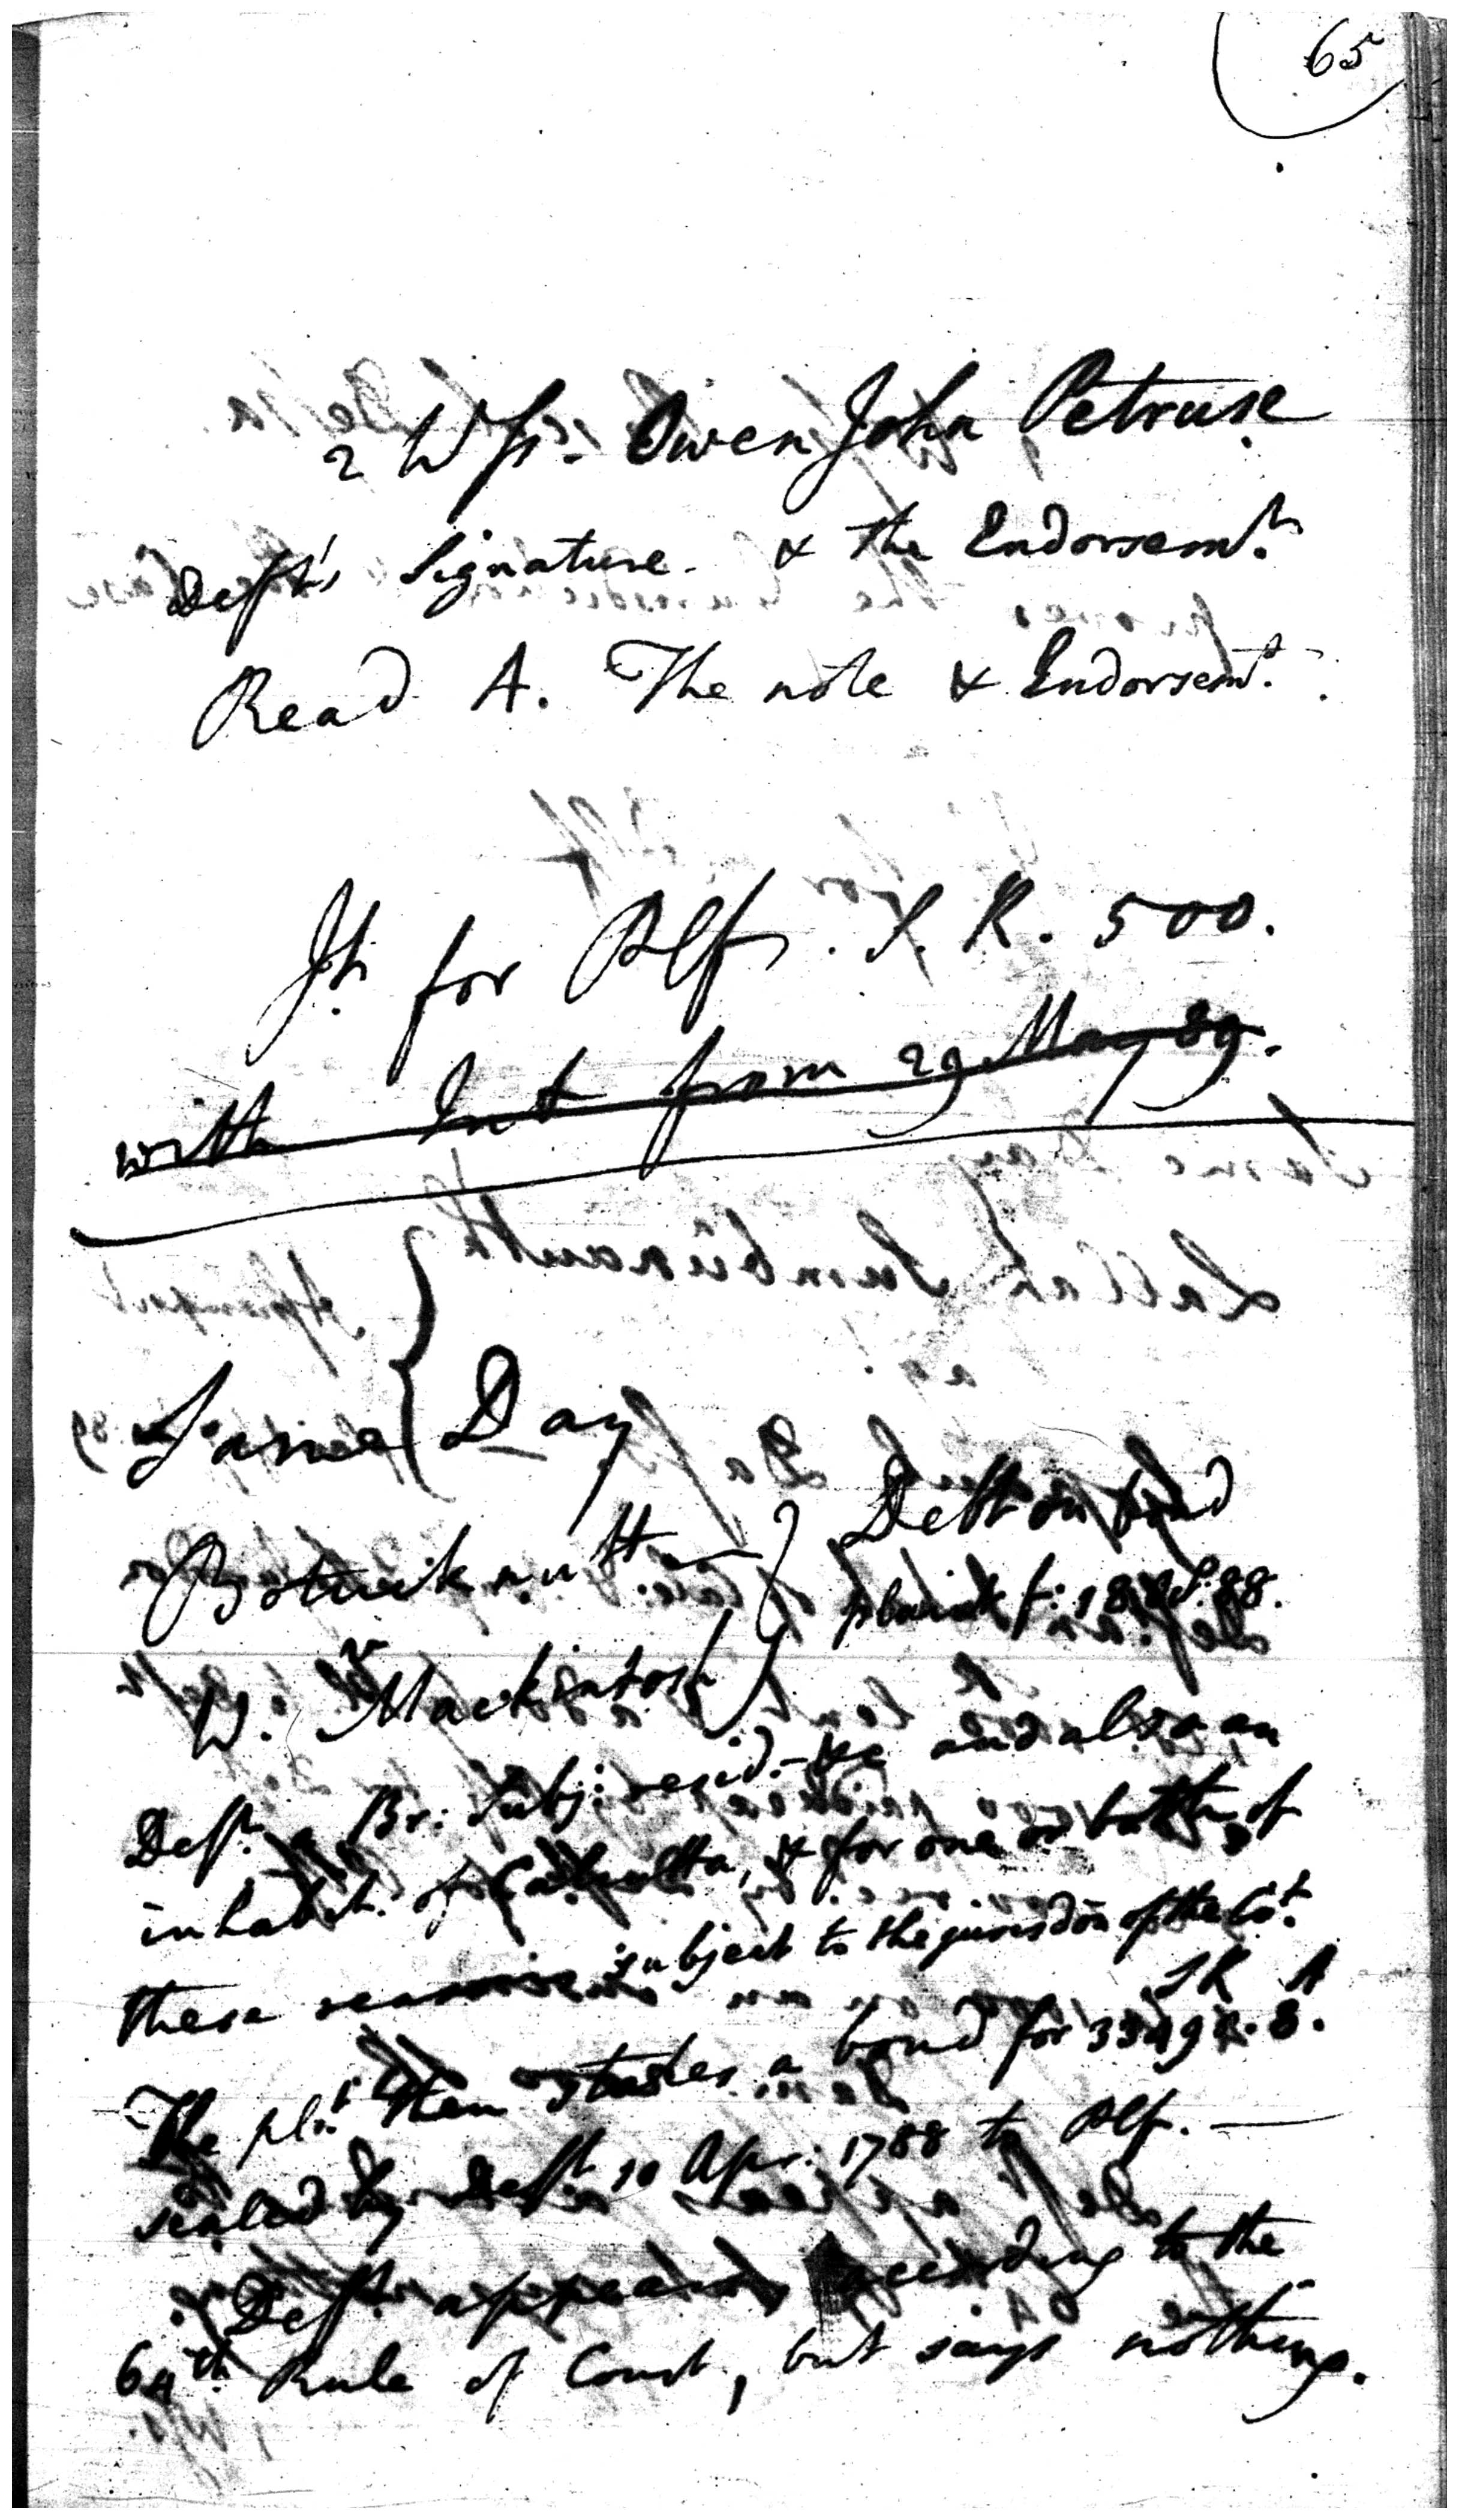 65
2 Wss. Owen John Petruse
Deft's Signature. & the Endorsemts.
Read A. The note & Endorsemt.
Jt. for Plf. S. R. 500.
with Int from 29 May 89.
Same Day
Debt on bond
plaint f: 18 88.
W. Mackintosh
Deft. a Br: Subj: resid. &c and also an
inhabt. of Calcutta, & for one or both of
these reasons subject to the jurisdon of the Cot.
SR A
The plt. then states a bond for 8.
sealed by Deft 10 Apr. 1788 to Plf.
Deft. appears according to the
64th Rule of Court, but says nothing.